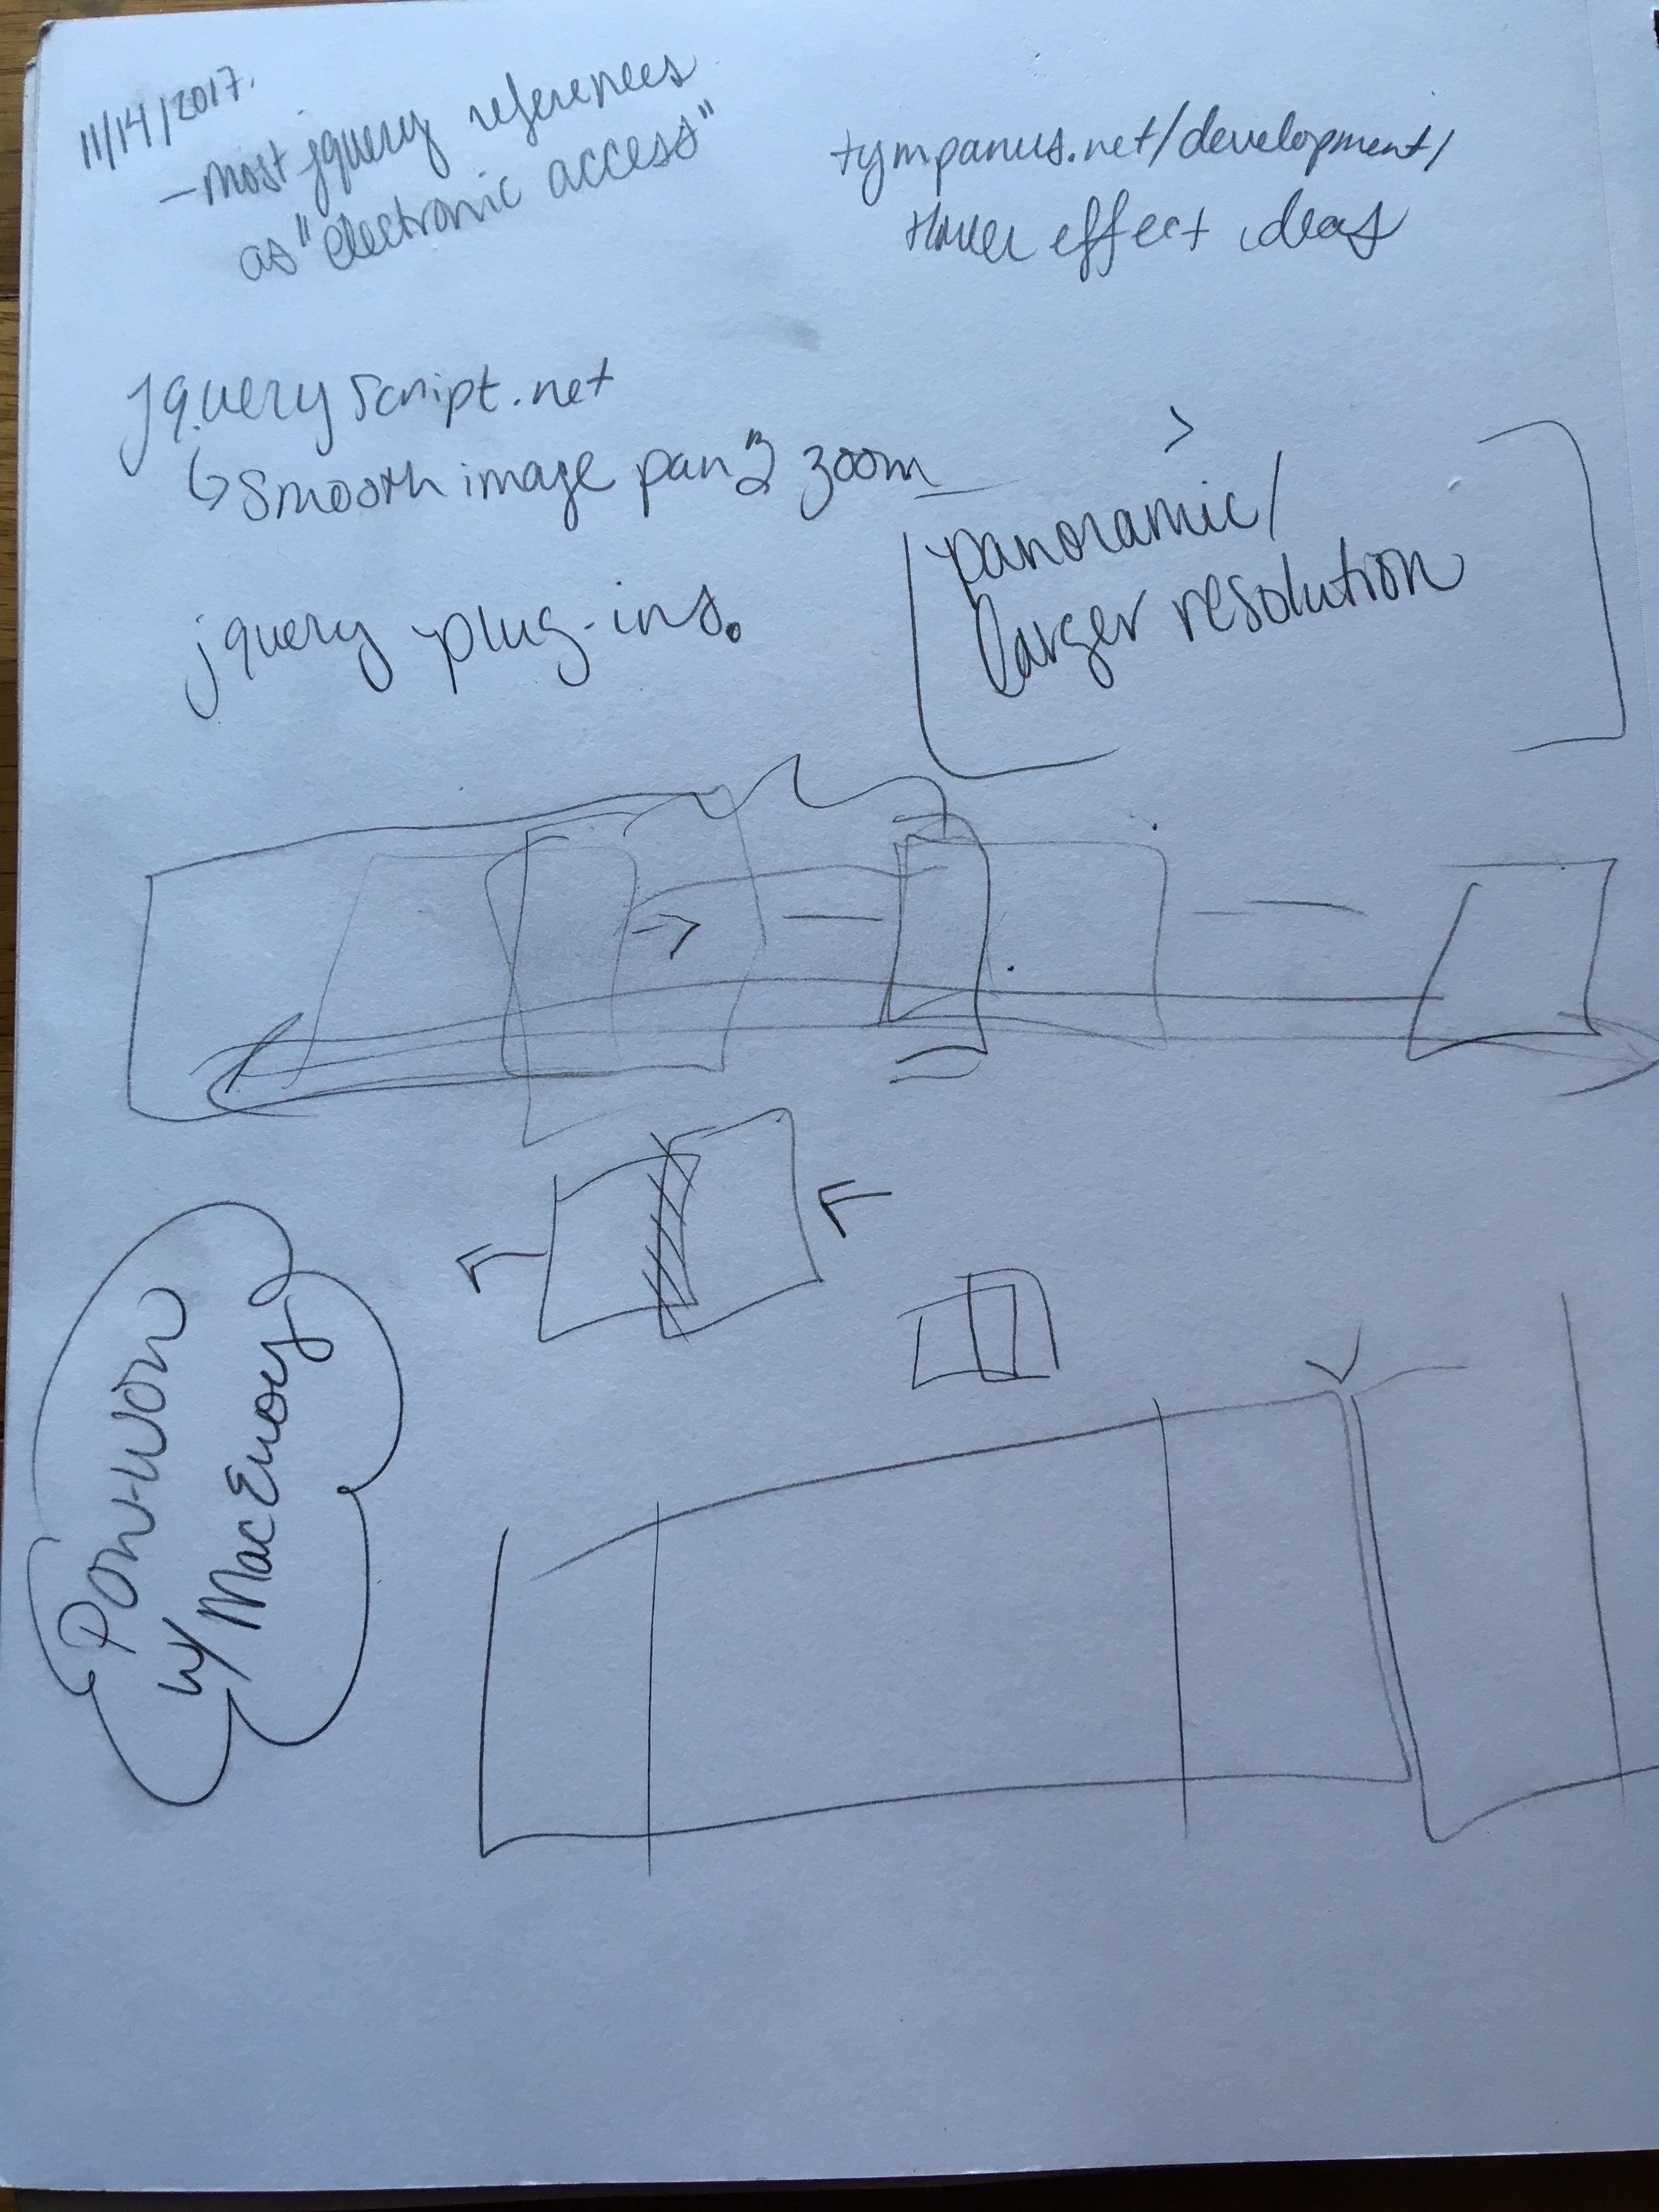 11/14/2017.
- most jquery references
as "electronic access"
tympanus.net/development/
Hover effect ideas
Jqueryscript.net
↳ smooth image pan & zoom
panoramic/
larger resolution
jquery plug-ins.
Pow-wow
w/ MacEvoy